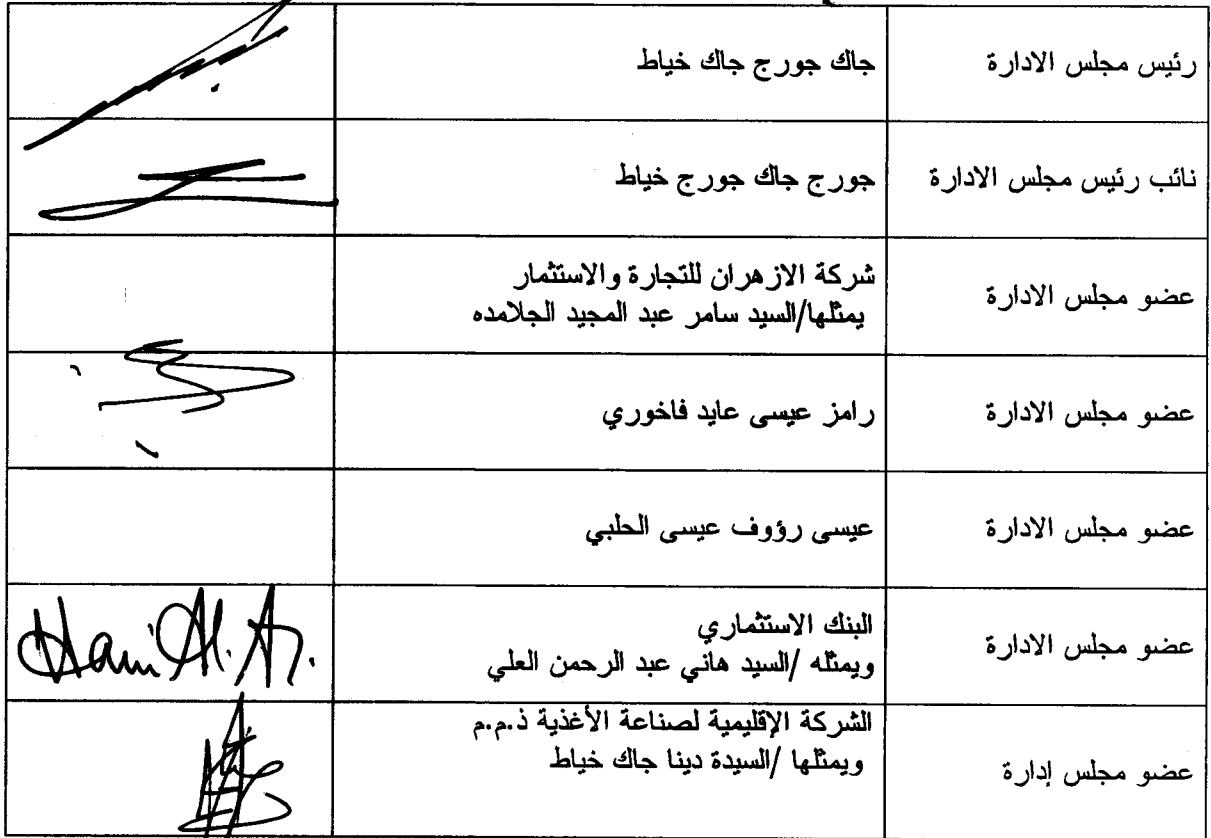 رئيس مجلس الادارة
جاك جورج جاك خياط
نائب رئيس مجلس الادارة
جورج جاك جورج خياط
عضو مجلس الادارة
شركة الازهران للتجارة والاستثمار
يمثلها/السيد سامر عبد المجيد الجلامده
عضو مجلس الادارة
رامز عيسى عايد فاخوري
عضو مجلس الادارة
عيسى رؤوف عيسى الحلبي
عضو مجلس الادارة
البنك الاستثماري
ويمثله /السيد هاني عبد الرحمن العلي
Hani Al.
عضو مجلس إدارة
الشركة الإقليمية لصناعة الأغذية ذ.م.م
ويمثلها /السيدة دينا جاك خياط